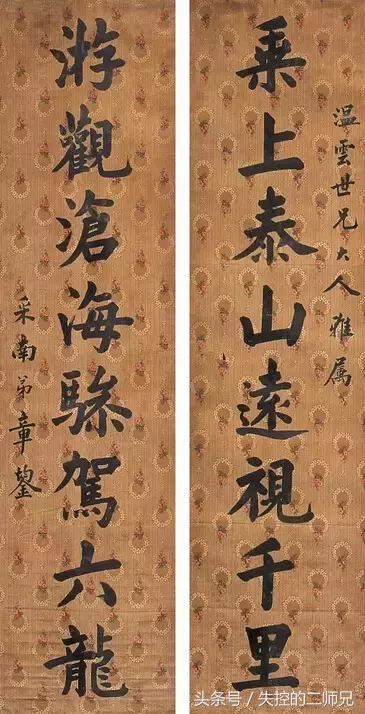 温雲世兄大人雅属
乘上泰山遠視千里
游觀滄海驂駕六龍
采南弟章鋆
头条号／失控的二师兄